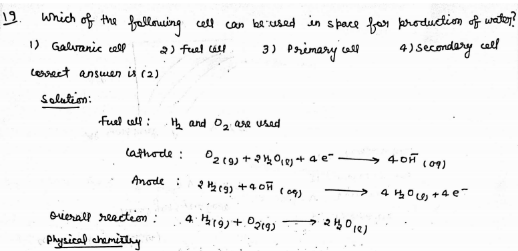 19. Which of the following cell can be used in space for production of water?
1) Galvanic cell 2) Fuel cell 3) Primary cell 4) Secondary cell
correct answer is (2)
Solution:
Fuel cell : H₂ and O₂ are used
Cathode : O₂(g) + 2H₂O(l) + 4e⁻ ⟶ 4OH⁻(aq)
Anode : 2H₂(g) + 4OH⁻(aq) ⟶ 4H₂O(l) + 4e⁻
Overall reaction : 4.H₂(g) + O₂(g) ⟶ 2H₂O(l)
Physical chemistry